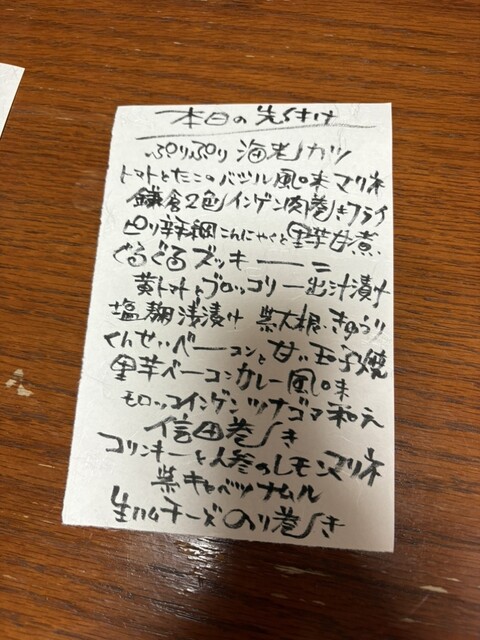 本日の先付け
ぷりぷり海老カツ
トマトとたこのバジル風味マリネ
鎌倉2色インゲン肉巻きフライ
ピリ辛糸こんにゃくと里芋甘煮
ぐるぐるズッキーニ
黄トマトとブロッコリー出汁漬け
塩麹浅漬け 紫大根・きゅうり
くんせいベーコンと甘い玉子焼
里芋ベーコンカレー風味
モロッコインゲンツナゴマ和え
信田巻き
コリンキーと人参のレモンマリネ
紫キャベツナムル
生ハムチーズのり巻き